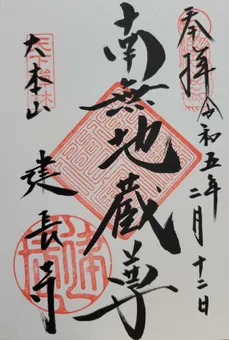 奉拝
令和五年二月十二日
南無地蔵尊
大本山
建長寺